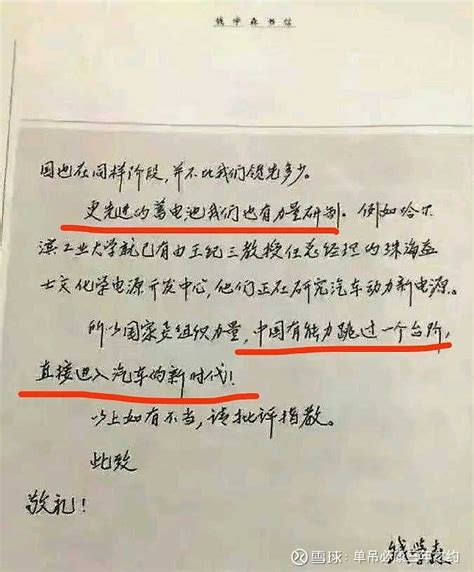 钱学森书信
国也在同样阶段,并不比我们领先多少。
更先进的蓄电池我们也有力量研制。例如哈尔
滨工业大学就已有由王纪三教授任总经理的珠海益
士文化学电源开发中心,他们正在研究汽车动力新电源。
所以国家要组织力量,中国有能力跳过一个台阶,
直接进入汽车的新时代!
以上如有不当,请批评指教。
此致
敬礼!
钱学森
雪球:单吊